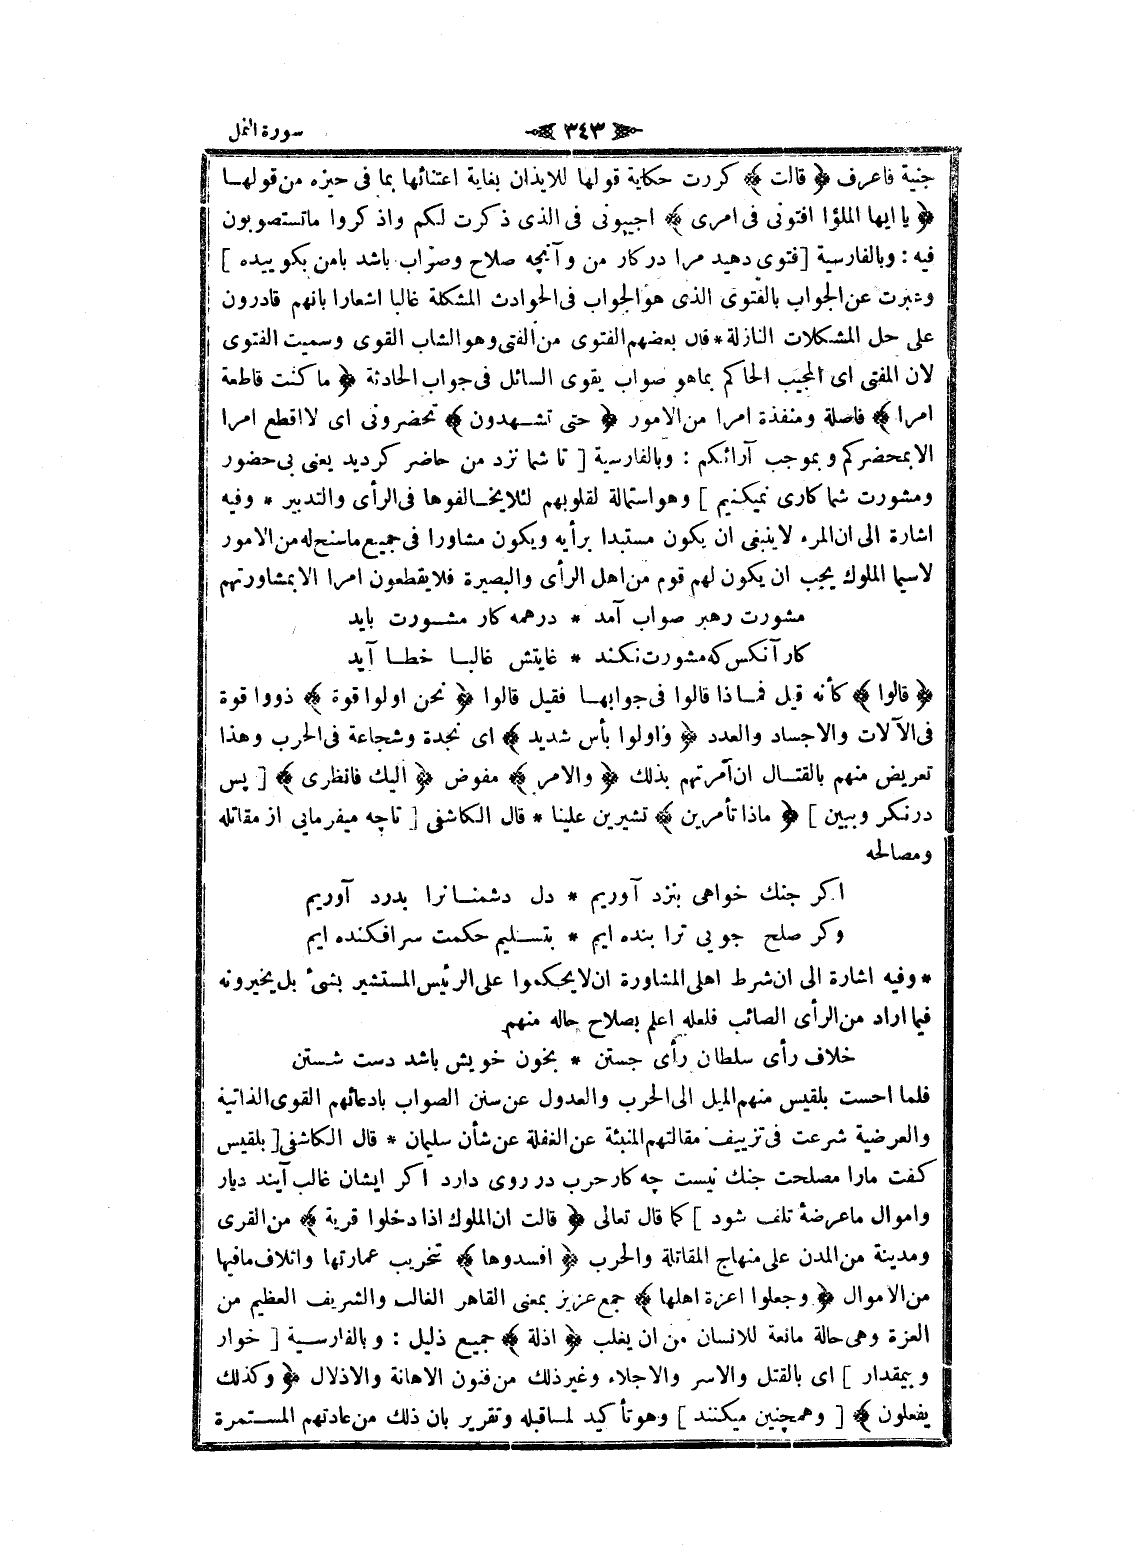 سورة النمل
٣٤٣
جنية فاعرف ﴿ قالت ﴾ كررت حكاية قولها للايذان بغاية اعتنائها بما فى حيزه من قولهـا
﴿ يا ايها الملؤا افتونى فى امرى ﴾ اجيبونى فى الذى ذكرت لكم واذكروا ماتستصوبون
فيه : وبالفارسية [ فتوى دهيد مرا دركار من وآنچه صلاح وصواب باشد بامن بكوييده ]
وعبرت عن الجواب بالفتوى الذى هو الجواب فى الحوادث المشكلة غالبا اشعارا بانهم قادرون
على حل المشكلات النازلة * قال بعضهم الفتوى من الفتى وهو الشاب القوى وسميت الفتوى
لان المفتى اى المجيب الحاكم بماهو صواب يقوى السائل فى جواب الحادثة ﴿ ما كنت قاطعة
امرا ﴾ فاصلة ومنفذة امرا من الامور ﴿ حتى تشهدون ﴾ تحضرونى اى لااقطع امرا
الا بمحضركم وبموجب آرائكم : وبالفارسية [ تا شما نزد من حاضر كرديد يعنى بى حضور
ومشورت شما كارى نميكنيم ] وهو استمالة لقلوبهم لئلايخـالفوها فى الرأى والتدبير * وفيه
اشارة الى ان المرء لاينبغى ان يكون مستبدا برأيه ويكون مشاورا فى جميع ماسنح له من الامور
لاسيما الملوك يجب ان يكون لهم قوم من اهل الرأى والبصيرة فلايقطعون امرا الا بمشاورتهم
مشورت رهبر صواب آمد * درهمه كار مشـورت بايد
كار آنكس كه مشورت نكند * غايتش غالبـا خطـا آيد
﴿ قالوا ﴾ كأنه قيل فمـاذا قالوا فى جوابهـا فقيل قالوا ﴿ نحن اولوا قوة ﴾ ذووا قوة
فى الآلات والاجساد والعدد ﴿ واولوا بأس شديد ﴾ اى نجدة وشجاعة فى الحرب وهذا
تعريض منهم بالقتـال ان آمرتهم بذلك ﴿ والامر ﴾ مفوض ﴿ اليك فانظرى ﴾ [ پس
درنكر وببين ] ﴿ ماذا تأمرين ﴾ تشيرين علينا * قال الكاشفى [ تاچه ميفرمايى از مقاتله
ومصالحه
اكر جنك خواهى بنزد آوريم * دل دشمنـانرا بدرد آوريم
وكر صلح جويى ترا بنده ايم * بتسـليم حكمت سرافكنده ايم
* وفيه اشارة الى ان شرط اهل المشاورة ان لايحكموا على الرئيس المستشير بشىء بل يخيرونه
فيما اراد من الرأى الصائب فلعله اعلم بصلاح حاله منهم
خلاف رأى سلطان رأى جستن * بخون خويش باشد دست شستن
فلما احست بلقيس منهم الميل الى الحرب والعدول عن سنن الصواب بادعائهم القوى الذاتية
والعرضية شرعت فى تزييف مقالتهم المنبئة عن الغفلة عن شأن سليمان * قال الكاشفى [ بلقيس
كفت مارا مصلحت جنك نيست چه كار حرب در روى دارد اكر ايشان غالب آيند ديار
واموال ماعرضۀ تلف شود ] كما قال تعالى ﴿ قالت ان الملوك اذا دخلوا قرية ﴾ من القرى
ومدينة من المدن على منهاج المقاتلة والحرب ﴿ افسدوها ﴾ تخريب عمارتها واتلاف مافيها
من الاموال ﴿ وجعلوا اعزة اهلها ﴾ جمع عزيز بمعنى القاهر الغالب والشريف العظيم من
العزة وهى حالة مانعة للانسان من ان يغلب ﴿ اذلة ﴾ جميع ذليل : وبالفارسـية [ خوار
وبيمقدار ] اى بالقتل والاسر والاجلاء وغير ذلك من فنون الاهانة والاذلال ﴿ وكذلك
يفعلون ﴾ [ وهمچنين ميكنند ] وهو تأكيد لمـاقبله وتقرير بان ذلك من عادتهم المسـتمرة